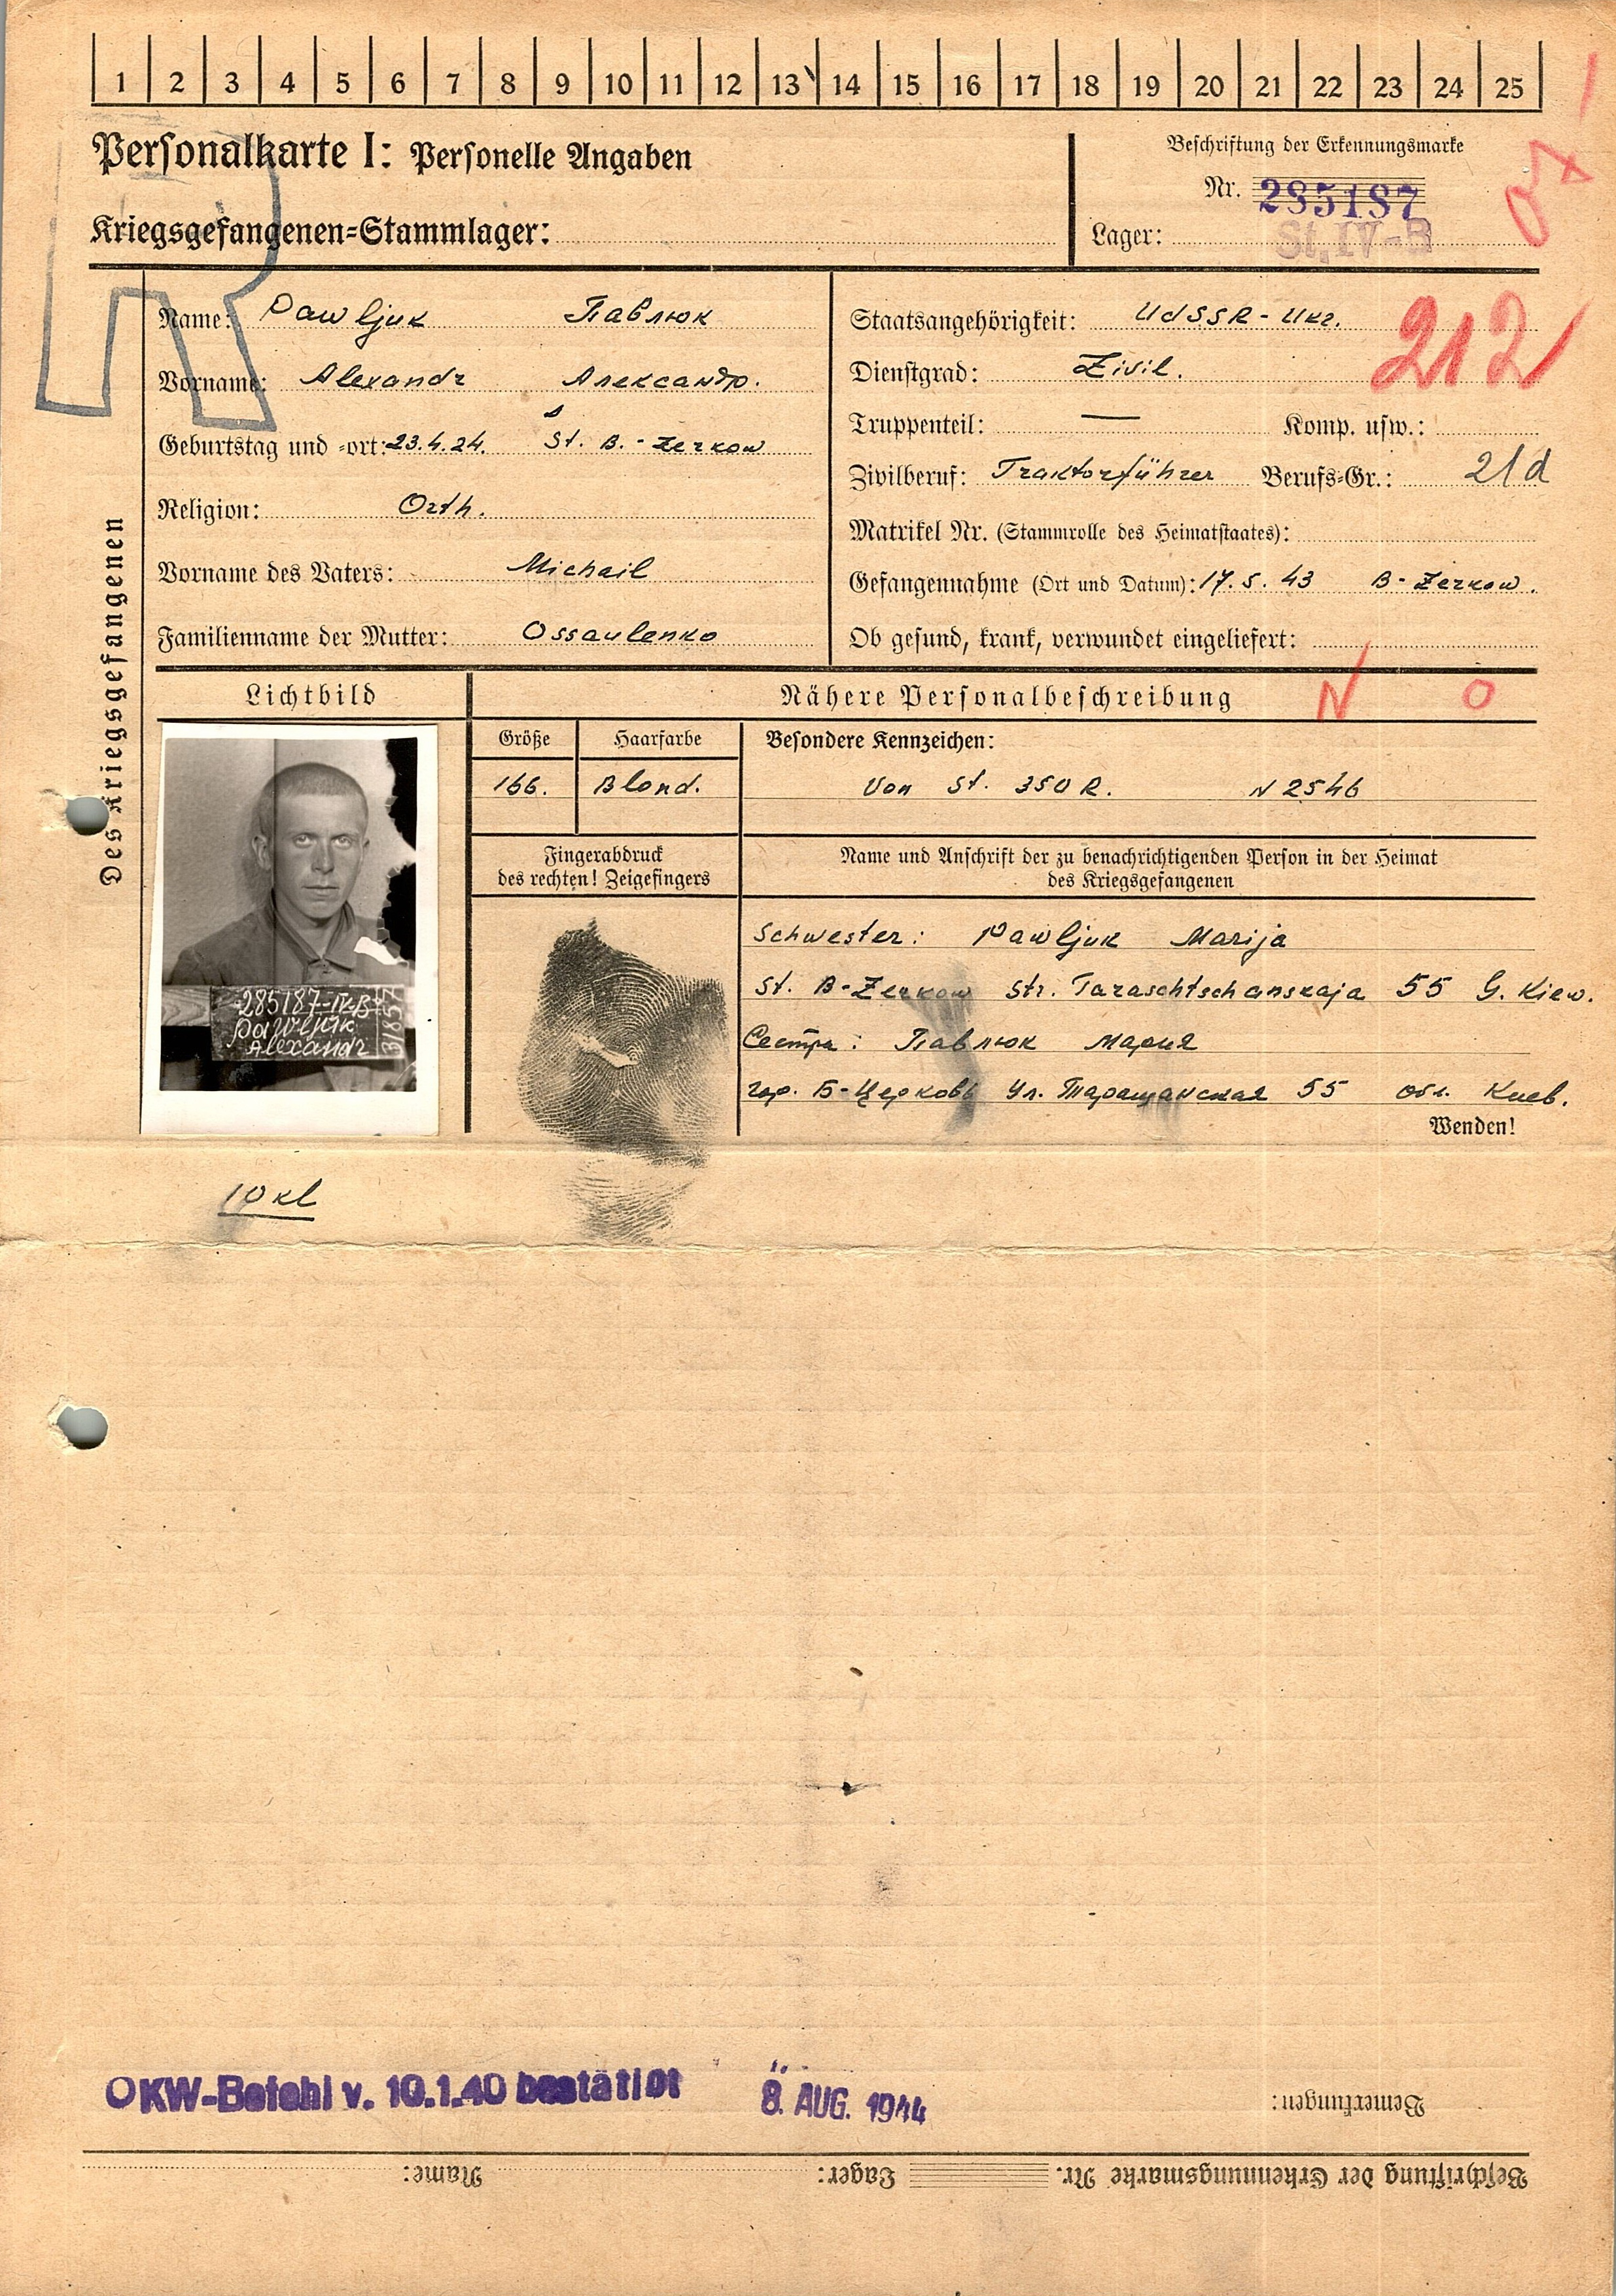 1 2 3 4 5 6 7 8 9 10 11 12 13 14 15 16 17 18 19 20 21 22 23 24 25
Personalkarte I: Personelle Angaben
Kriegsgefangenen=Stammlager:
Beschriftung der Erkennungsmarke
Nr. 285187
Lager: St. IV-B
Des Kriegsgefangenen
Name: Pawljuk Павлюк
Vorname: Alexandr Александр.
Geburtstag und =ort: 23.4.24. St. B.-Zerkow
Religion: Orth.
Vorname des Vaters: Michail
Familienname der Mutter: Ossaulenko
Staatsangehörigkeit: UdSSR - Ukr.
212
Dienstgrad: Zivil.
Truppenteil: — Komp. usw.:
Zivilberuf: Traktorführer Berufs=Gr.: 21d
Matrikel Nr. (Stammrolle des Heimatstaates):
Gefangennahme (Ort und Datum): 17.5.43 B-Zerkow.
Ob gesund, krank, verwundet eingeliefert:
Lichtbild
Nähere Personalbeschreibung N O
Größe
166.
Haarfarbe
Blond.
Besondere Kennzeichen:
Von St. 350 R. N 2546
Fingerabdruck
des rechten! Zeigefingers
Name und Anschrift der zu benachrichtigenden Person in der Heimat
des Kriegsgefangenen
Schwester: Pawljuk Marija
St. B-Zerkow Str. Taraschtschanskaja 55 G. Kiew.
Сестра: Павлюк Мария
гор. Б-Церковь Ул. Таращанская 55 обл. Киев.
Wenden!
285187-IV-B
Pawljuk
Alexandr
31857
10 kl
OKW-Befehl v. 10.1.40 bestätigt 8. AUG. 1944
Bemerkungen:
Beschriftung der Erkennungsmarke Nr. Lager: Name: